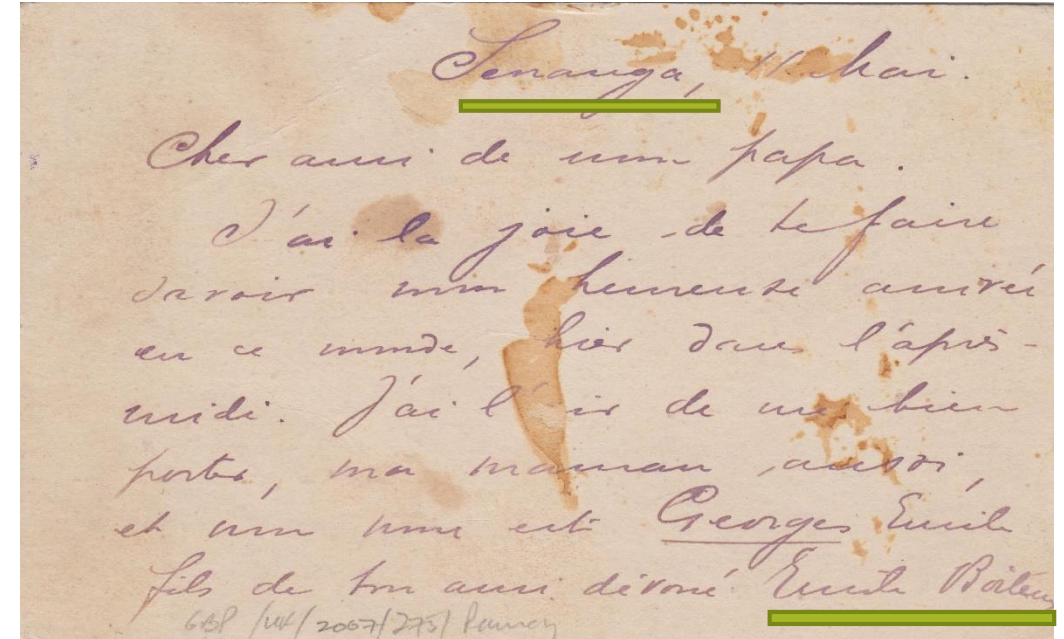 Senanga, 11 Mai.
Cher ami de mon papa.
J'ai la joie de te faire
savoir mon heureuse arrivée
en ce monde, hier dans l'après-
midi. J'ai l'air de me bien
porter, ma maman aussi,
et mon nom est Georges Emile
fils de ton ami dévoué Emile Boiteux
GBP / 2007/275/